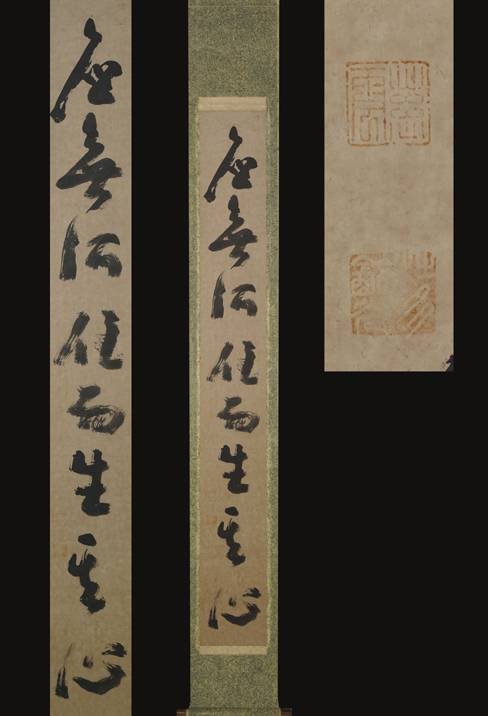 應無所住而生其心
應無所住而生其心